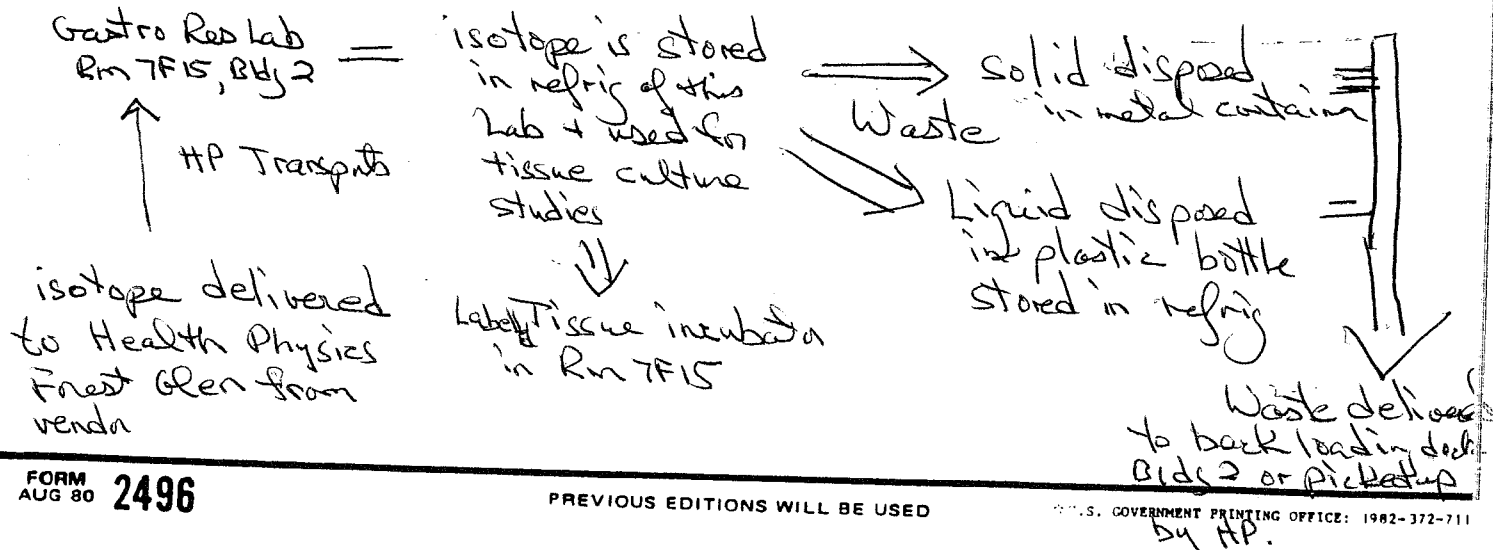 Gastro Res Lab
Rm 7F15, Bldg 2
HP Transports
isotope delivered
to Health Physics
Forest Glen from
vendor
isotope is stored
in refrig of this
Lab + used for
tissue culture
studies
Label Tissue incubator
in Rm 7F15
Waste
solid disposed
in metal container
Liquid disposed
in plastic bottle
stored in refrig
Waste delivered
to back loading dock
Bldg 2 or picked up
by HP.
FORM
AUG 80 2496
PREVIOUS EDITIONS WILL BE USED
U.S. GOVERNMENT PRINTING OFFICE: 1982-372-711